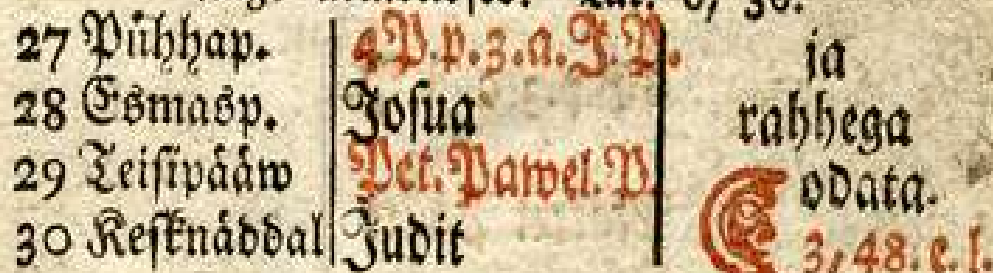 27 Pühhap. 4 P. p. 3. a. J. P. ja
28 Esmasp. Josua rahhega
29 Teisipääw Pet. Pawel. P. odata.
30 Keſknäddal Judit 3, 48. e. l.